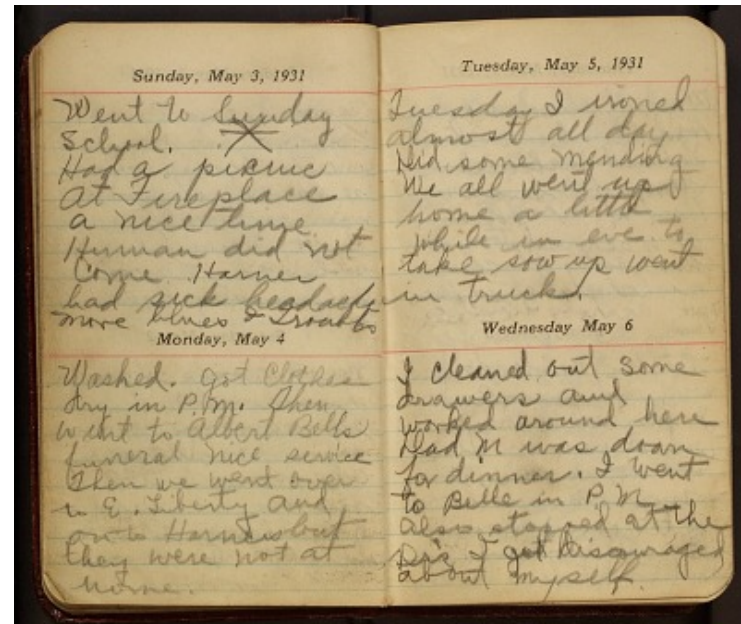 Sunday, May 3, 1931
Went to Sunday
School. X
Had a picnic
at Fireplace
a nice time
Human did not
Come. Harner
had sick headache
more blues & troubles
Monday, May 4
Washed. got clothes
dry in P.M. then
went to Albert Bells
funeral nice service
Then we went over
to E. Liberty and
on to Harners but
they were not at
home.
Tuesday, May 5, 1931
Tuesday I ironed
almost all day
Did some mending
We all went up
home a little
while in eve to
take sow up went
in truck.
Wednesday May 6
I cleaned out some
drawers and
worked around here
Dad M was down
for dinner. I went
to Belle in P.M.
also stopped at the
Drs I got discouraged
about myself.